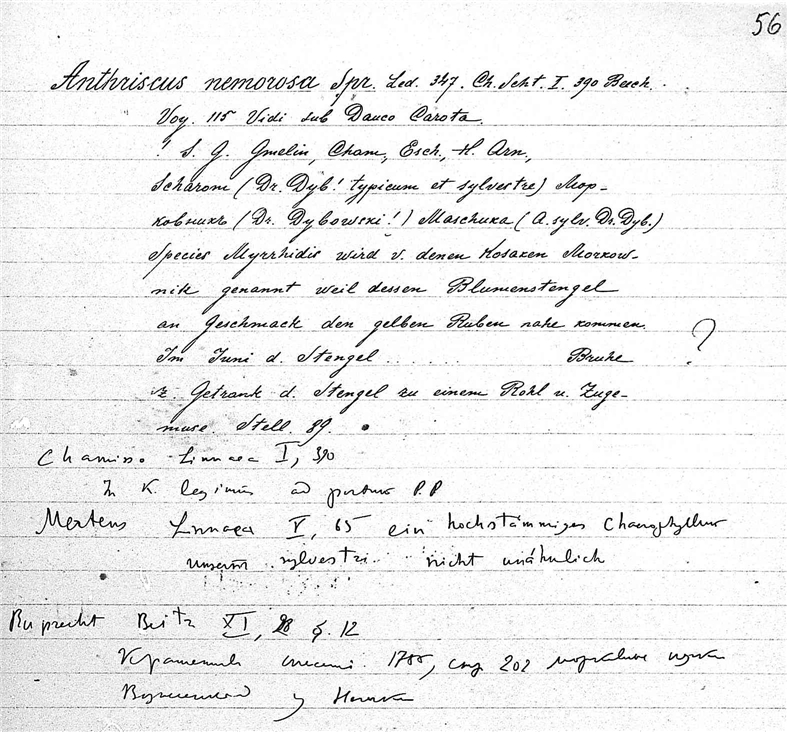 56
Anthriscus nemorosa Spr. Led. 347. Ch. Scht. I. 390 Beech.
Voy. 115 Vidi sub Dauco Carota.
! S. G. Gmelin, Cham, Esch, H. Arn,
Scharom (Dr. Dyb! typicum et sylvestre) Мор-
ковникъ (Dr. Dybowski!) Maschuka (A. sylv. Dr. Dyb.)
Species Myrrhidis wird v. denen Kosaken Morkow-
nik genannt weil dessen Blumenstengel
an Geschmack den gelben Ruben nahe kommen.
Im Juni d. Stengel . . . . . . Bruhe ?
z. Getrank d. Stengel zu einem Kohl u. Zuge-
muse. Stell. 89.
Chamisso Linnaea I, 390
In K. legimus ad portum P.P
Mertens Linnaea V, 65 ein hochstämmiges Chaerophyllum
unserm sylvestri nicht unähnlich
Ruprecht Beitr XI, 28 §. 12
1755, 202